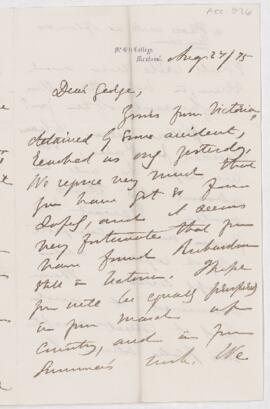 Acc. 926
McGill College
Montreal.
Aug 24/75
Dear George,
Yours from Victoria,
detained by some accident,
reached us only yesterday.
We rejoice very much that
you have got so far
safely, and it seems
very fortunate that you
have found Richardson
still in Victoria. I hope
you will be equally prospered
in your march up
Country, and in your
Summer's work. We